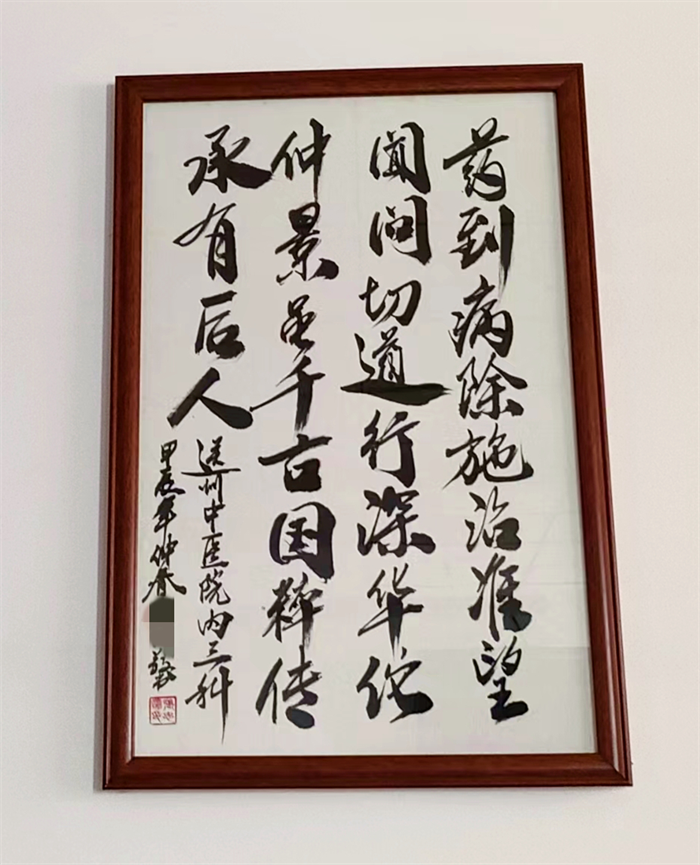 药到病除施治准望
闻问切道行深华佗
仲景圣千古国粹传
承有后人
送州中医院内三科
甲辰年仲春
敬